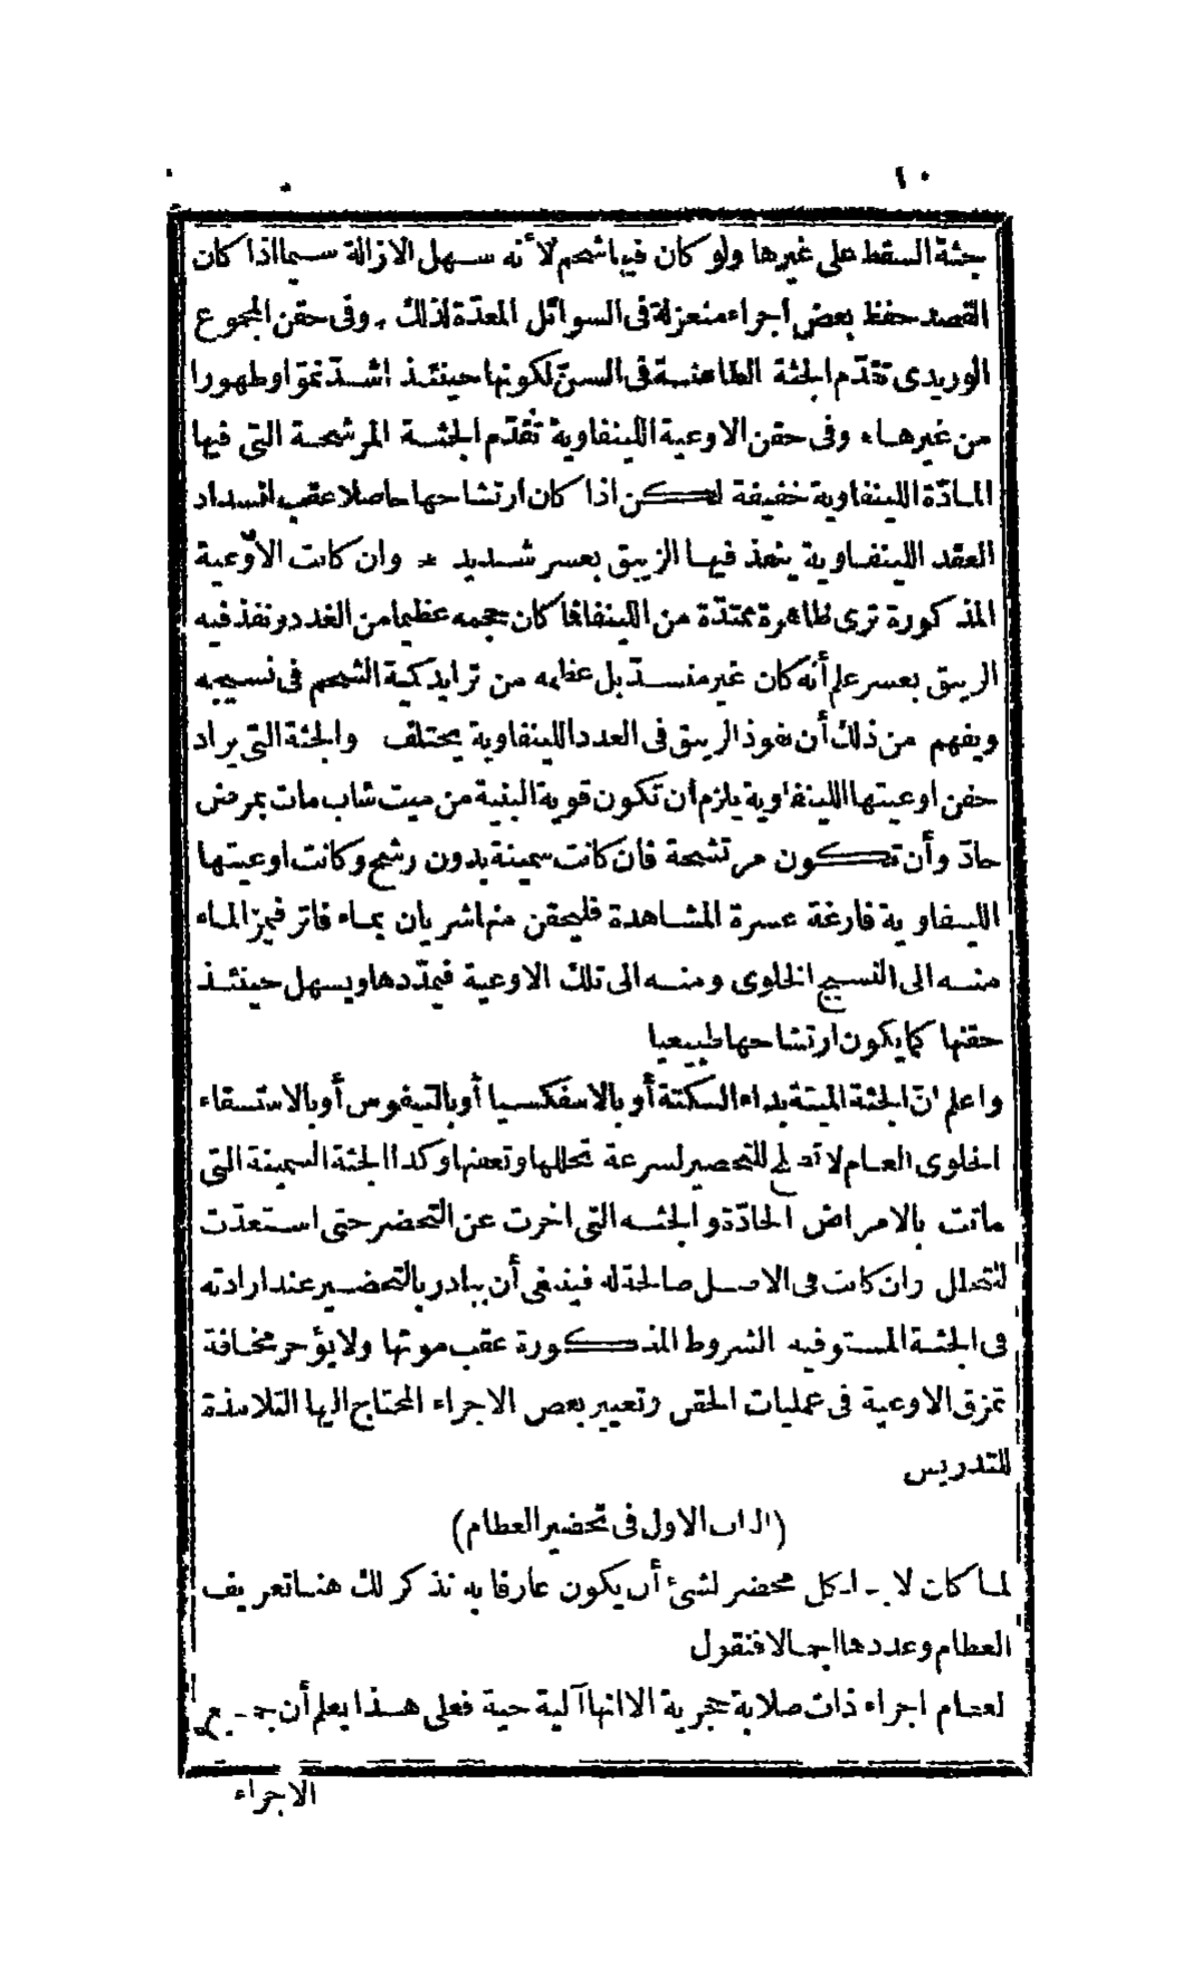 ١٠
جثة السقط على غيرها ولو كان فيها شحم لأنه سهل الازالة سيما اذا كان
القصد حفظ بعض اجزاء منعزلة فى السوائل المعدّة لذلك * وفى حقن المجموع
الوريدى تقدّم الجثة الطاعنة فى السنّ لكونها حينئذ اشدّ نموّا وظهورا
من غيرها * وفى حقن الاوعية اللينفاوية تقدّم الجثة المرشحة التى فيها
المادّة اللينفاوية خفيفة لكن اذا كان ارتشاحها حاصلا عقب انسداد
العقد اللينفاوية ينفذ فيها الزيبق بعسر شديد * وان كانت الاوعية
المذكورة ترى ظاهرة ممتدّة من اللينفا فما كان حجمه عظيما من الغدد ونفذ فيه
الزيبق بعسر علم أنه كان غير منسدّ بل عظمه من تزايد كمية الشحم فى نسيجه
ويفهم من ذلك أن نفوذ الزيبق فى الغدد اللينفاوية يختلف والجثة التى يراد
حقن اوعيتها اللينفاوية يلزم أن تكون قوية البنية من ميت شاب مات بمرض
حادّ وأن تكون مرتشحة فان كانت سمينة بدون رشح وكانت اوعيتها
الليفاوية فارغة عسرة المشاهدة فليحقن منها شريان بماء فاتر فيمز الماء
منه الى النسيج الخلوى ومنه الى تلك الاوعية فيمدّدها ويسهل حينئذ
حقنها كما يكون ارتشاحها طبيعيا
واعلم انّ الجثة الميتة بداء السكتة أو بالاسفكسيا أو بالتيفوس أو بالاستسقاء
الخلوى العام لا تصلح للتحضير لسرعة تحللها وتعفنها وكذا الجثة السمينة التى
ماتت بالامراض الحادّة والجثة التى اخرت عن التحضر حتى استعدّت
للتحلل وان كانت فى الاصل صالحة له فينبغى أن يبادر بالتحضير عند ارادته
فى الجثة المستوفيه الشروط المذكورة عقب موتها ولا يؤخر مخافة
تمزق الاوعية فى عمليات الحقن وتغيير بعض الاجزاء المحتاج اليها التلامذة
للتدريس
(الباب الاول فى تحضير العظام)
لما كان لابد لكل محضر لشئ أن يكون عارفا به نذكر لك هنا تعريف
العظام وعددها اجمالا فنقول
العظام اجزاء ذات صلابة حجرية الا انها آلية حية فعلى هذا يعلم أن جميع
الاجزاء